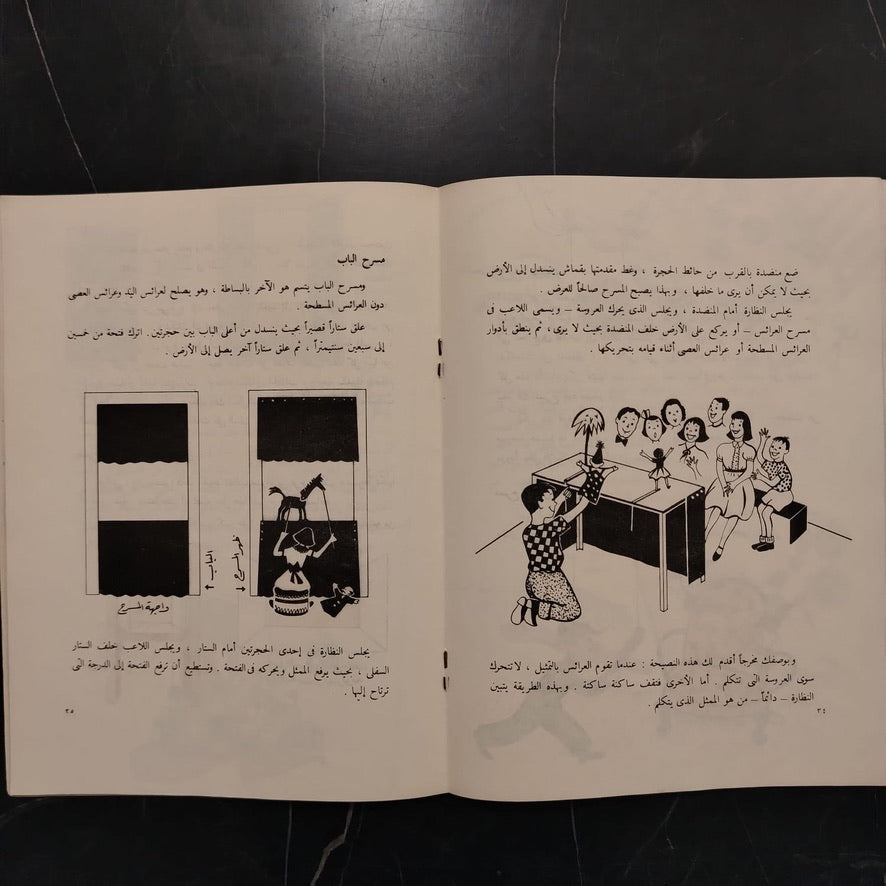 ضع منضدة بالقرب من حائط الحجرة ، وغط مقدمتها بقماش ينسدل إلى الأرض
بحيث لا يمكن أن يرى ما خلفها ، وبهذا يصبح المسرح صالحاً للعرض .
يجلس النظارة أمام المنضدة ، ويجلس الذى يحرك العروسة – ويسمى اللاعب فى
مسرح العرائس – أو يركع على الأرض خلف المنضدة بحيث لا يرى ، ثم ينطق بأدوار
العرائس المسطحة أو عرائس العصى أثناء قيامه بتحريكها .
وبوصفك مخرجاً أقدم لك هذه النصيحة : عندما تقوم العرائس بالتمثيل ، لا تتحرك
سوى العروسة التى تتكلم . أما الأخرى فتقف ساكنة ساكنة . وبهذه الطريقة يتبين
النظارة – دائماً – من هو الممثل الذى يتكلم .
٣٤
مسرح الباب
ومسرح الباب يتسم هو الآخر بالبساطة ، وهو يصلح لعرائس اليد وعرائس العصى
دون العرائس المسطحة .
علق ستاراً قصيراً بحيث ينسدل من أعلى الباب بين حجرتين . اترك فتحة من خمسين
إلى سبعين سنتيمتراً ، ثم علق ستاراً آخر يصل إلى الأرض .
ظهر المسرح ↓
الباب ↑
واجهة المسرح
يجلس النظارة فى إحدى الحجرتين أمام الستار ، ويجلس اللاعب خلف الستار
السفلى ، بحيث يرفع الممثل ويحركه فى الفتحة . وتستطيع أن ترفع الفتحة إلى الدرجة التى
ترتاح إليها .
٣٥